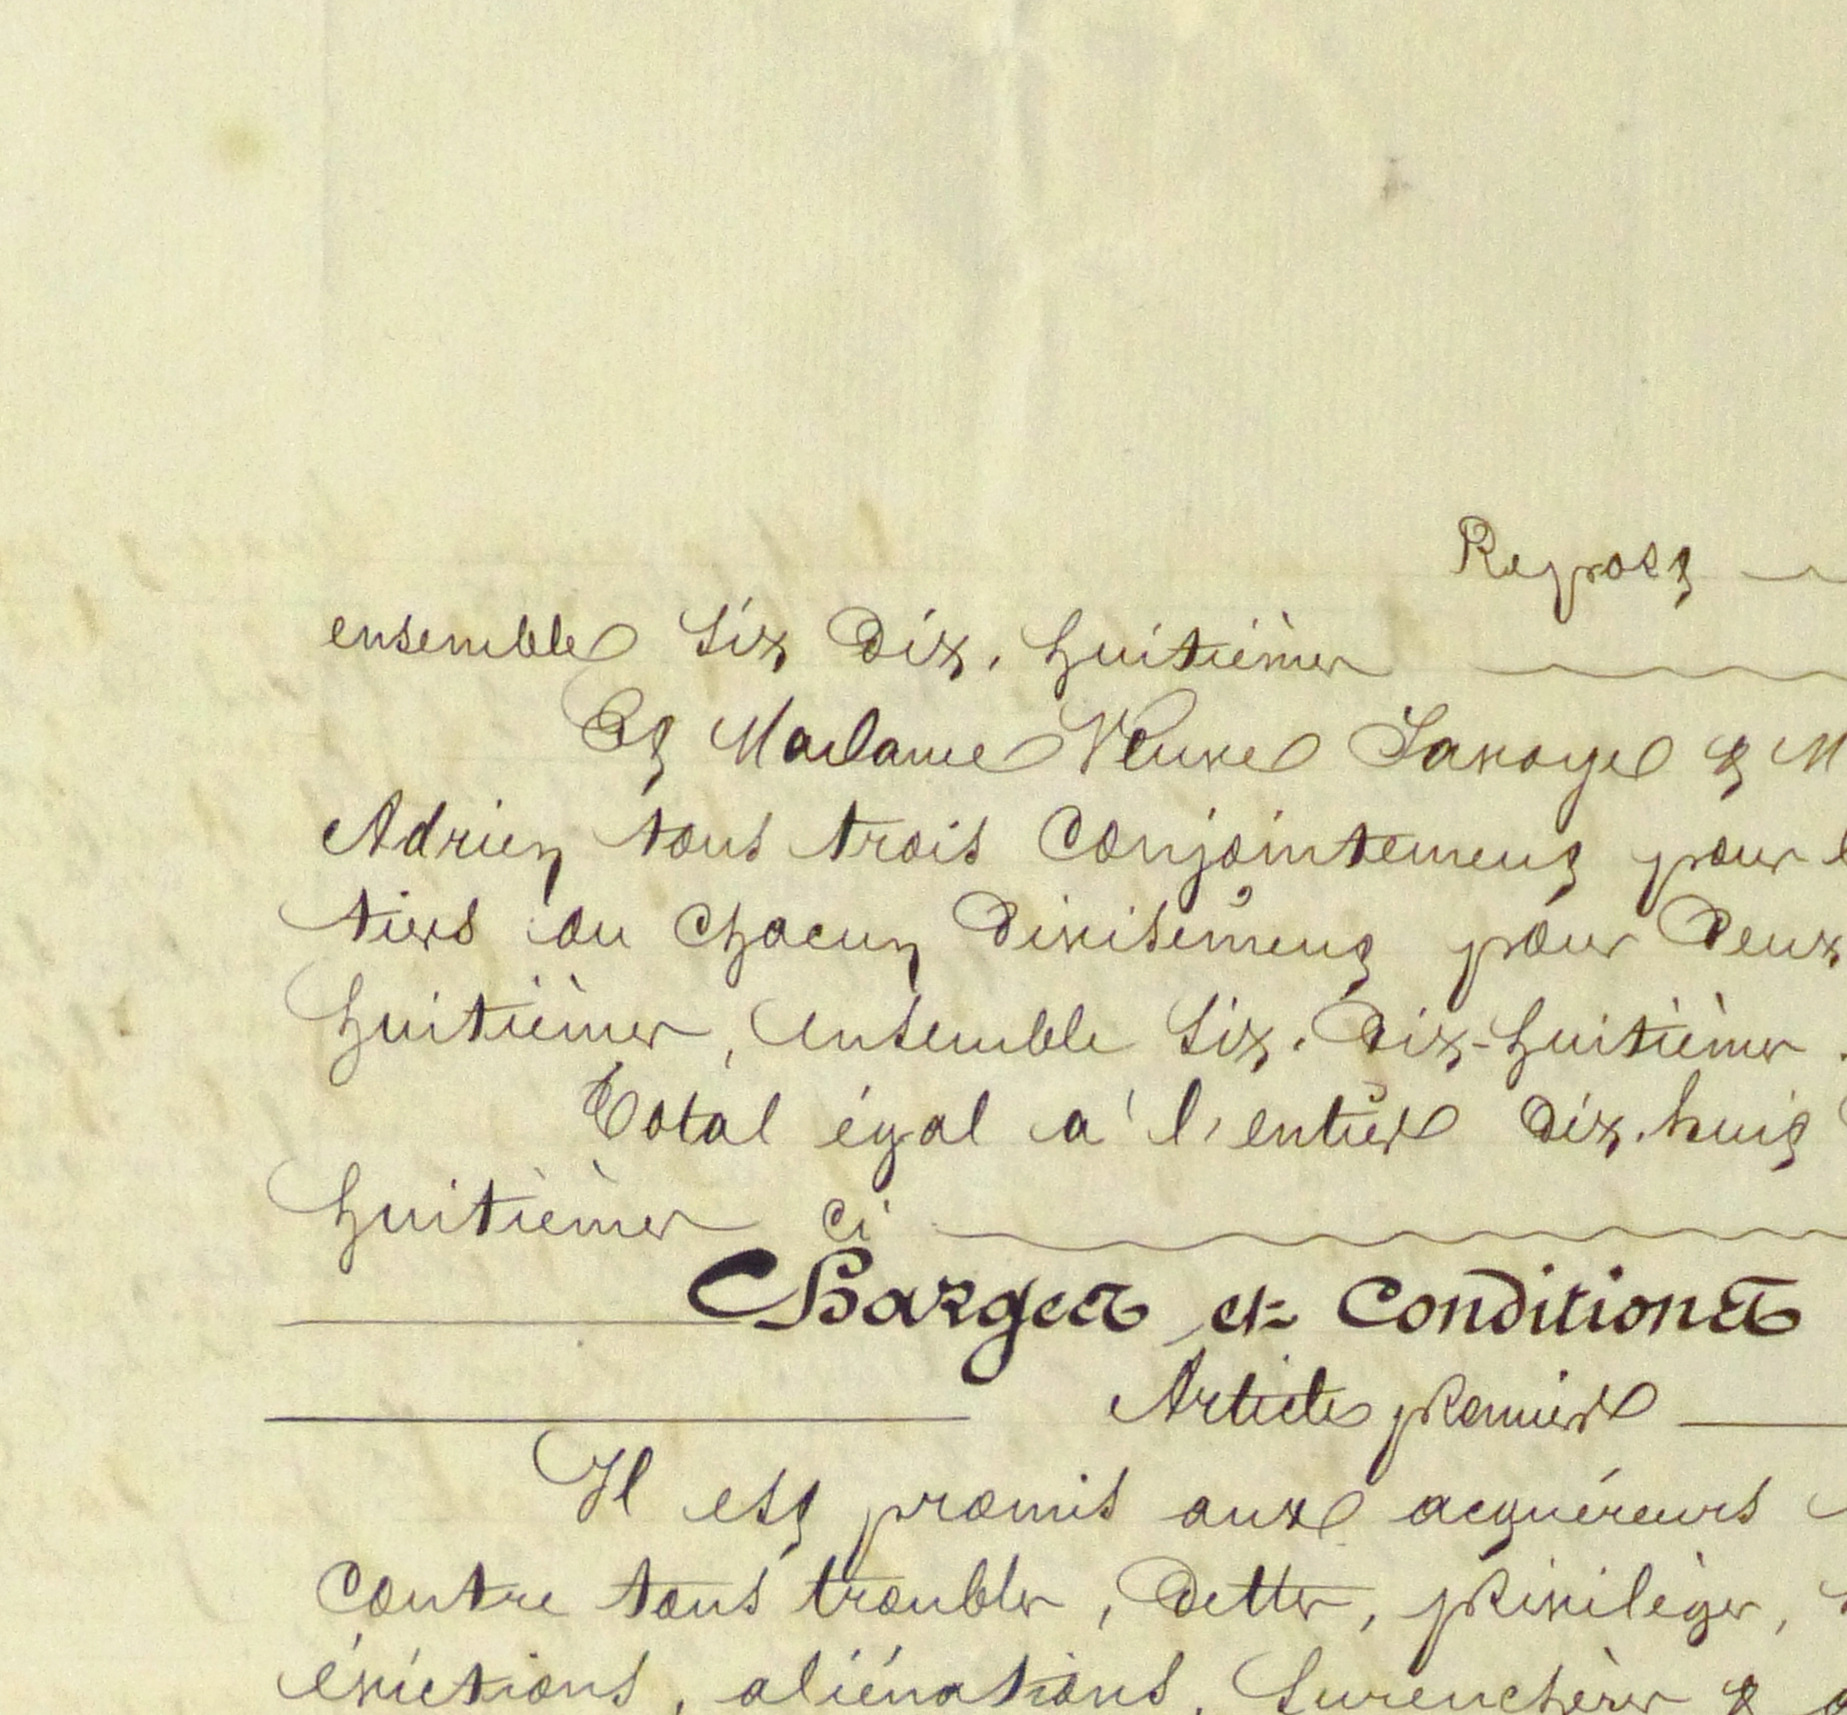 Report
ensemble six dix. huitièmes
Et Madame Veuve Savoye & M
Adrien tous trois conjointement pour
tiers ou chacun divisément pour deux
huitièmes, ensemble six. dix-huitièmes.
Total égal à l'entier dix. huit
huitièmes ci
Charges et Conditions
Article premier
Il est promis aux acquéreurs
contre tous troubles, dettes, privilèges,
évictions, aliénations, surenchères &